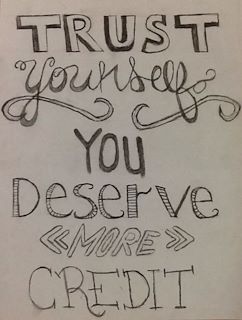 TRUST
yourself
YOU
Deserve
«MORE»
CREDIT